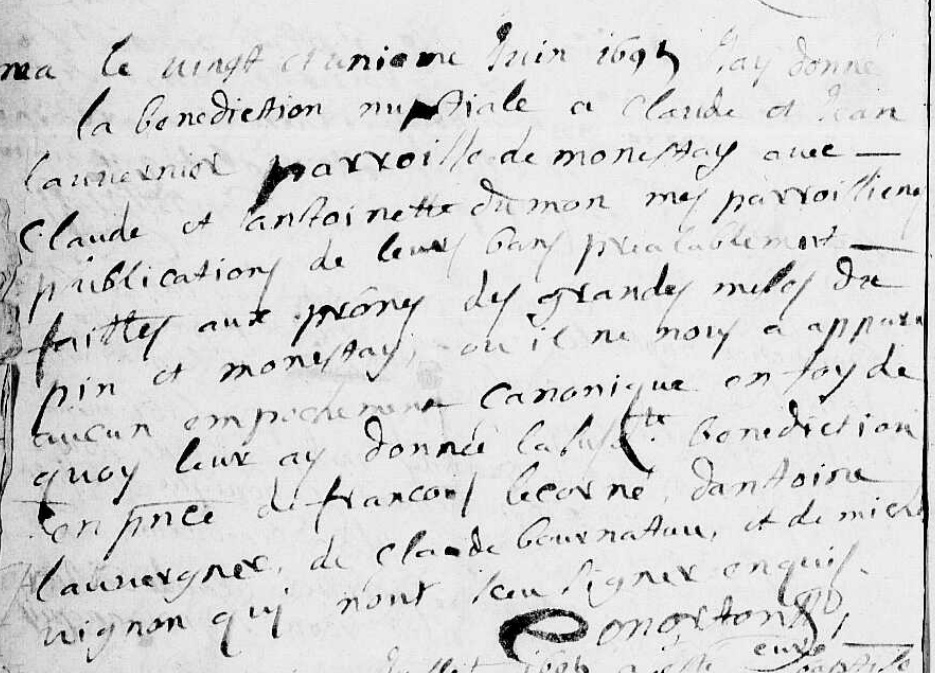 ma le vingt et unieme Juin 1695 Jay donné
la benediction nuptiale a Claude et Jean
lauvernier parroisse de monestay avec —
Claude et antoinette dumon mes parroissiens
publications de leurs bans prealablement —
faittes aux prônes des grandes messes du
pin et monestay, ou il ne nous a apparu
aucun empechement canonique en foy de
quoy leur ay donnée la sus.te benediction
en pnce de francois lecorne, dantoine
lauvergner, de Claude bournatau, et de michel
vignon qui nont sceu signer enquis.
curé
Juillet 1695 a esté baptisé